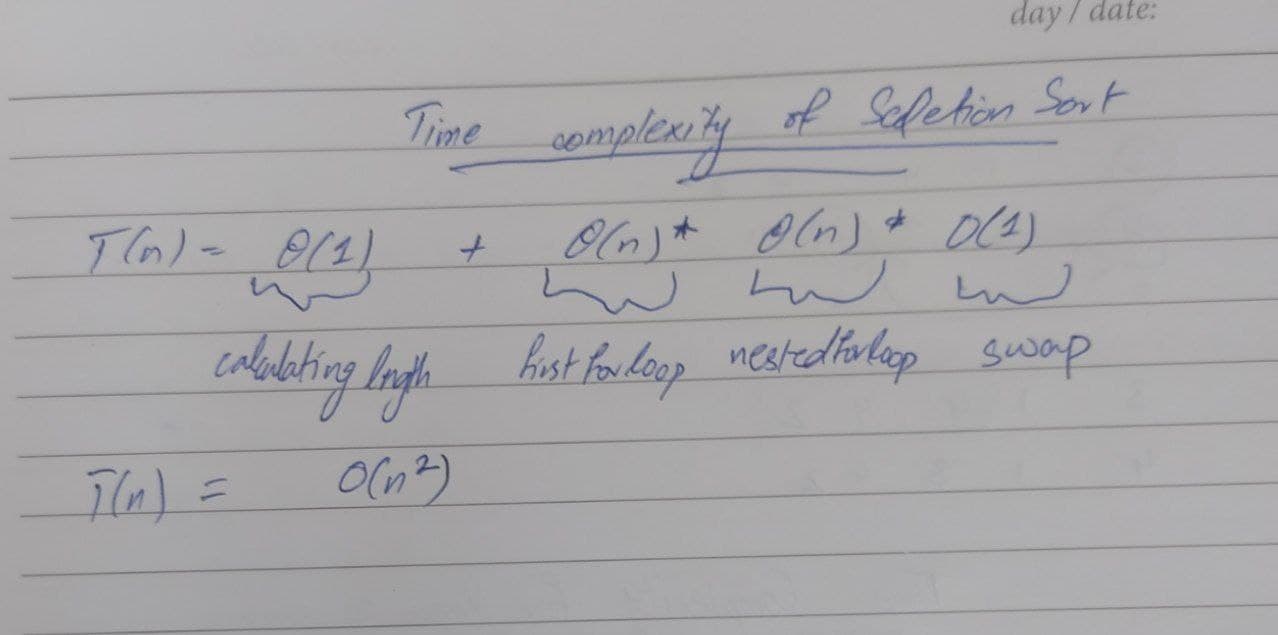 day / date:
Time complexity of Selection Sort
T(n) = θ(1) + θ(n) * θ(n) * O(1)
calculating length first for loop nested for loop swap
T(n) = O(n²)